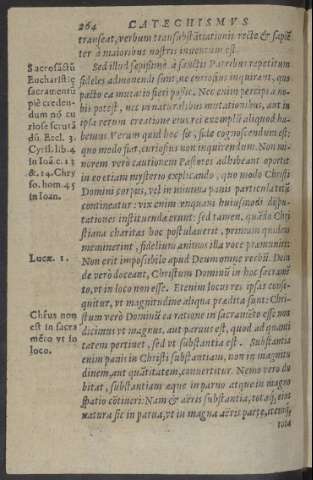 264 CATECHISMVS
transeat, verbum transubstātiationis rectè & sapiē
ter à maioribus nostris inuentum est.
Sed illud sæpissimè à sanctis Patribus repetitum
fideles admonendi sunt, ne curiosius inquirant, quo
pacto ea mutatio fieri possit. Nec enim percipi a no-
bis potest, nec in naturalibus mutationibus, aut in
ipsa rerum creatione eius rei exemplū aliquod ha-
bemus Verum quid hoc sit, fide cognoscendum est:
quo modo fiat, curiosius non inquirendum. Non mi-
norem verò cautionem Pastores adhibeant oportet
in eo etiam mysterio explicando, quo modo Christi
Domini corpus, vel in minima panis particula totū
contineatur: vix enim vnquam huiusmodi dispu-
tationes instituendæ erunt: sed tamen, quādo Chri
stiana charitas hoc postulauerit, primum quidem
meminerint, fidelium animos illa voce præmunire:
Non erit impossibile apud Deum omne verbū. Dein
de verò doceant, Christum Dominū in hoc sacramē
to, vt in loco non esse. Etenim locus res ipsas conse-
quitur, vt magnitudine aliqua prædita sunt: Chri-
stum verò Dominū ea ratione in sacramēto esse non
dicimus vt magnus, aut paruus est, quod ad quanti
tatem pertinet, sed vt substantia est. Substantia
enim panis in Christi substantiam, non in magnitu
dinem, aut quātitatem, conuertitur. Nemo verò du
bitat, substantiam æque in paruo atque in magno
spatio cōtineri: Nam & aëris substantia, totaq́; eius
natura sic in parua, vt in magna aëris parte, itemq́;
tota
Sacrosāctū
Eucharistię
sacramentū
piè creden-
dum nō cu
riosè scrutā
dū. Eccl. 3.
Cyril. lib. 4
in Ioā. c. 13
&. 14. Chry
so. hom. 45
in Ioan.
Lucæ. 1.
Chrūs non
est in sacra
mēto vt in
loco.